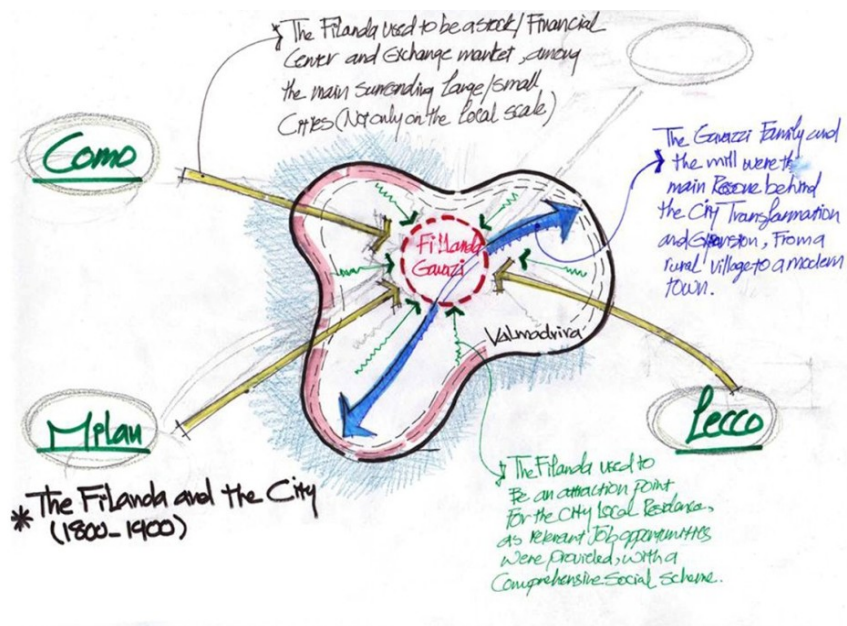 The Filanda used to be a stock/Financial
Center and Exchange market, among
the main surrounding Large/small
Cities (Not only on the Local scale)
Como
The Gavazzi Family and
the mill were the
main Resoue behind
the City Transformation
and Expansion, From a
rural village to a modern
town.
Filanda
Gavazi
Valmadrira
Milan
Lecco
* The Filanda and the City
(1800-1900)
The Filanda used to
Be an attraction point
For the City Local Residances,
as relevant Job opportunities
were provided, with a
Comprehensive Social scheme.